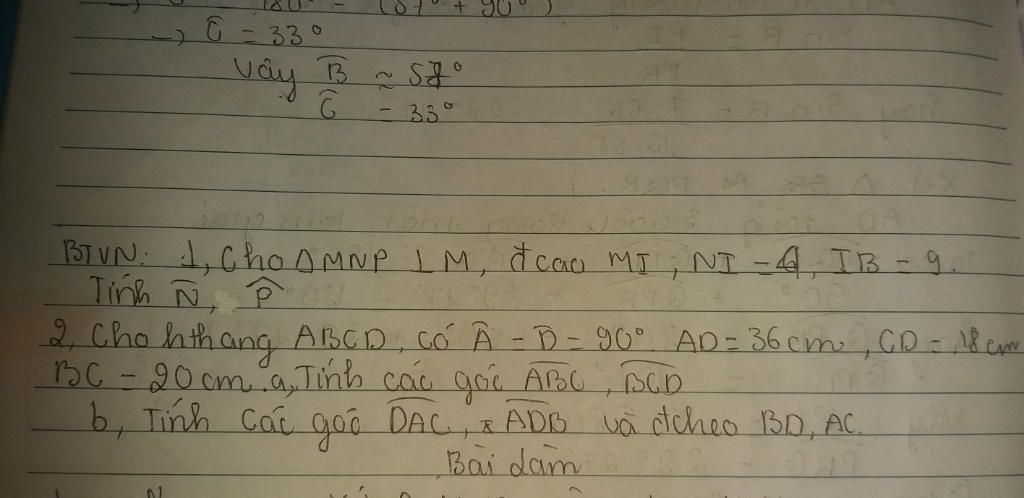 → Ĉ = 33°
Vậy B̂ ≈ 57°
Ĉ = 33°
BTVN: 1, Cho ΔMNP ⊥ M, đcao MI, NI = 4, IB = 9.
Tính N̂, P̂
2, Cho hthang ABCD, có Â = D̂ = 90° AD = 36cm, CD = 18cm
BC = 20cm. a, Tính các góc ABC, BCD
b, Tính các góc DAC, ADB và đcheo BD, AC.
Bài làm